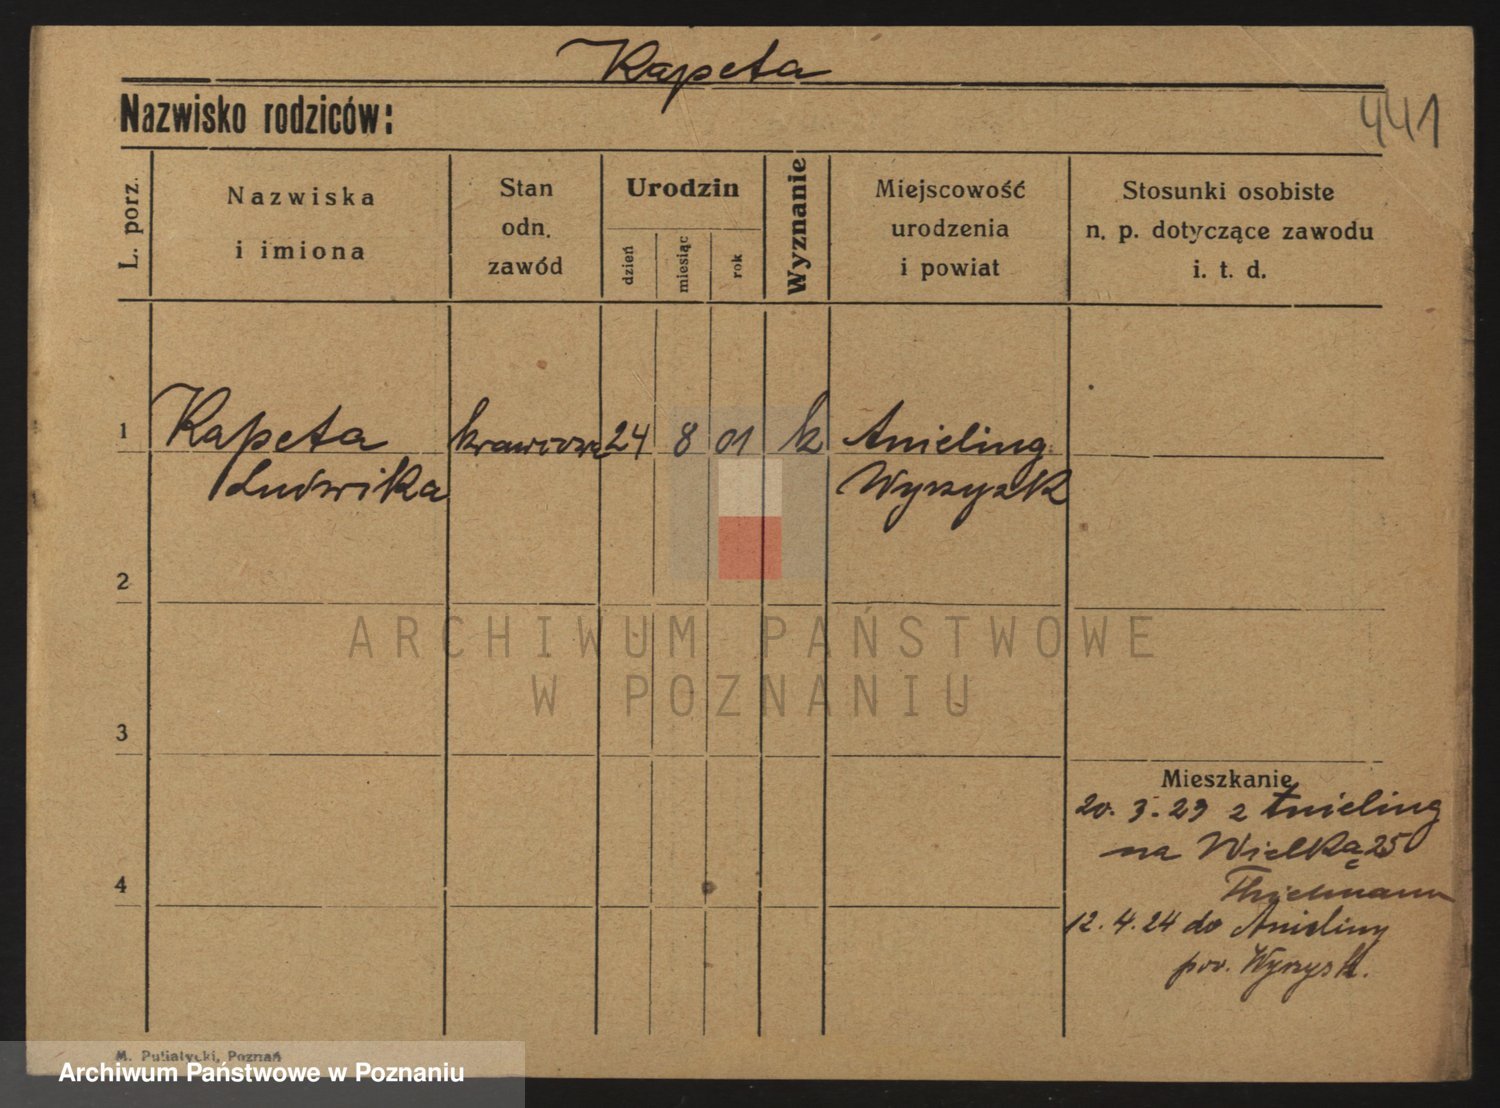 Kapeta
Nazwisko rodziców:
441
L. porz.
Nazwiska
i imiona
Stan
odn.
zawód
Urodzin
dzień
miesiąc
rok
Wyznanie
Miejscowość
urodzenia
i powiat
Stosunki osobiste
n. p. dotyczące zawodu
i. t. d.
1
Kapeta
Ludwika
krawcowa
24
8
01
k
Anieling
Wyrzysk
2
3
4
Mieszkanie
20. 3. 23 z Anieling
na Wielką 25
Thielmann
12. 4. 24 do Anieliny
pow. Wyrzysk.
M. Putiatycki, Poznań
ARCHIWUM PAŃSTWOWE
W POZNANIU
Archiwum Państwowe w Poznaniu